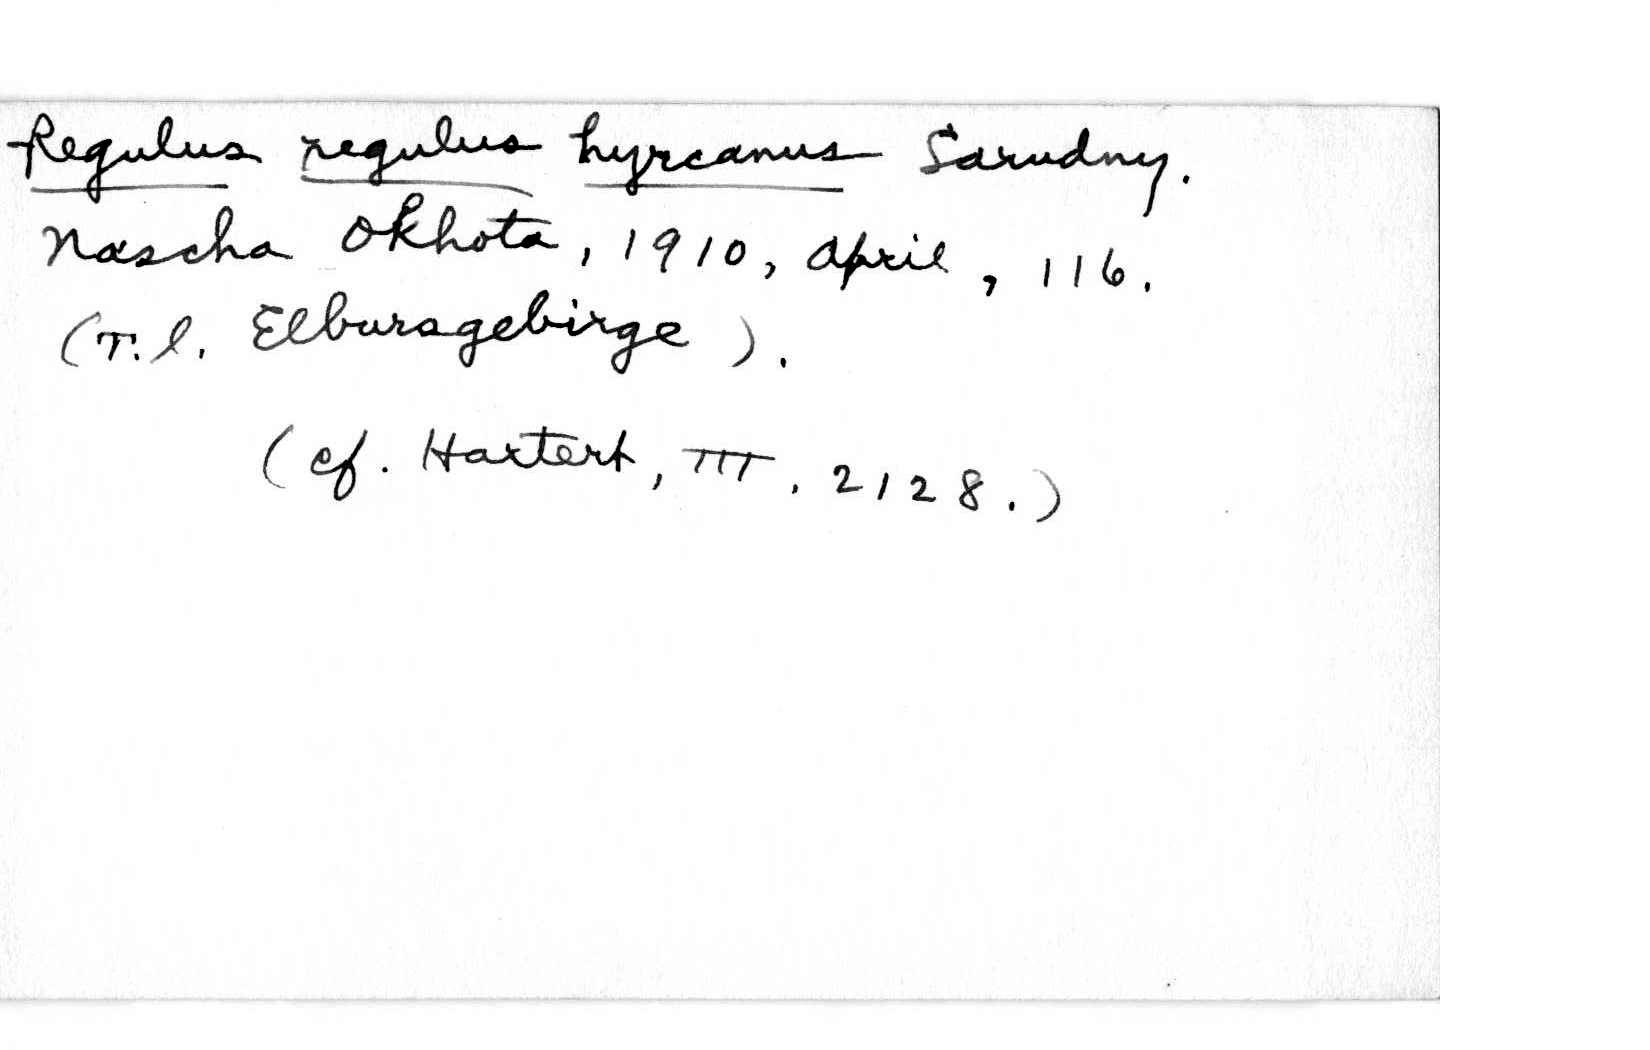 Regulus regulus hyrcanus Sarudny.
Nascha Okhota, 1910, April, 116.
(T.l. Elbursgebirge).
(cf. Hartert, III, 2128.)